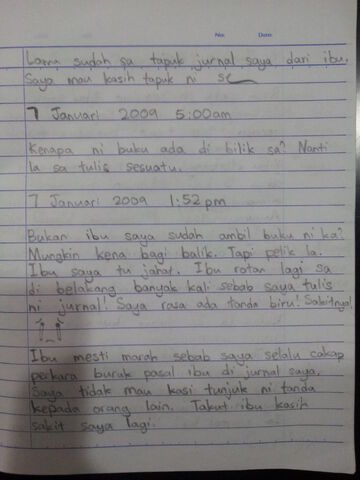 No: Date:
Lama sudah sa tapuk jurnal saya dari ibu.
Saya mau kasih tapuk ni se
7 Januari 2009 5:00am
Kenapa ni buku ada di bilik sa? Nanti
la sa tulis sesuatu.
7 Januari 2009 1:52 pm
Bukan ibu saya sudah ambil buku ni ka?
Mungkin kena bagi balik. Tapi pelik la.
Ibu saya tu jahat. Ibu rotan lagi sa
di belakang banyak kali sebab saya tulis
ni jurnal! Saya rasa ada tanda biru! Sakitnya!
Ibu mesti marah sebab saya selalu cakap
perkara buruk pasal ibu di jurnal saya.
Saya tidak mau kasi tunjuk ni tanda
kepada orang lain. Takut ibu kasih
sakit saya lagi.